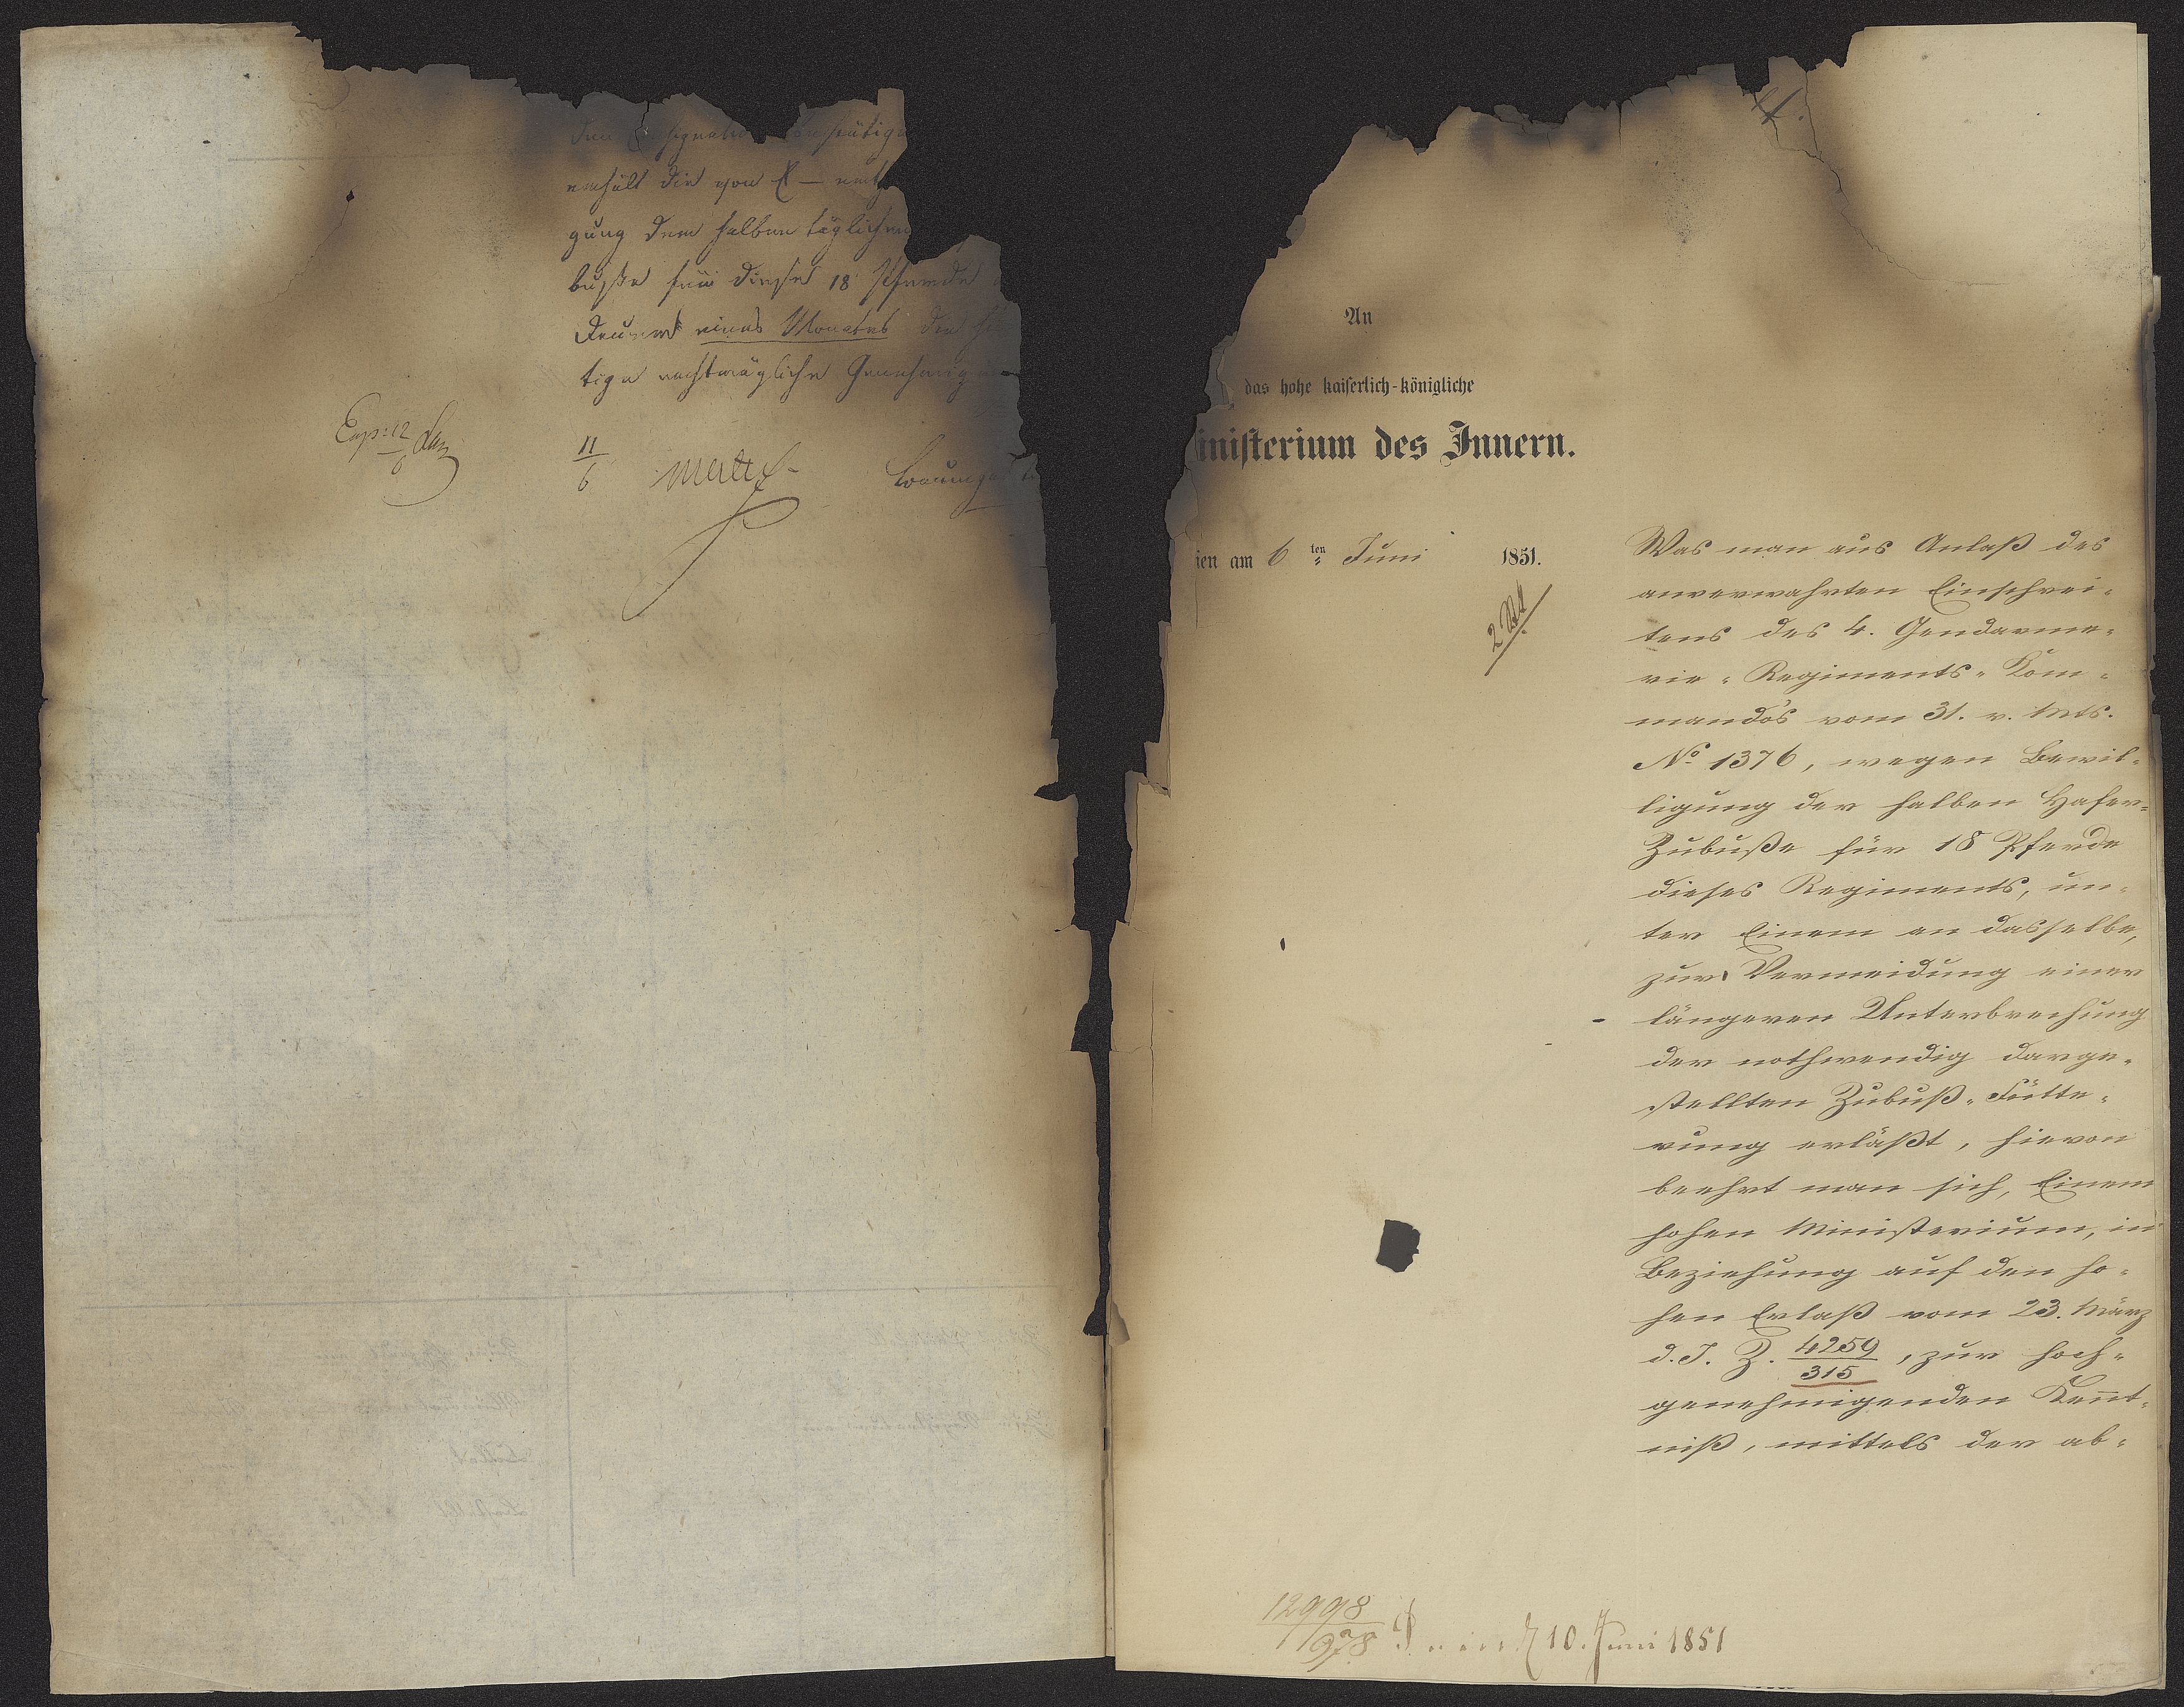 erhält die von E —
gung der halben täglichen
buße für diese 18 Pferde
eines Monates die
tige nachträgliche Genehmigun
Exp: 12/6
11/6
An
das hohe kaiserlich-königliche
inisterium des Innern.
ien am 6 ten Juni 1851.
Was man aus Anlaß des
anverwahrten Einschrei-
tens des 4. Gendarme-
rie-Regiments-Kom-
mando's vom 31. v. Mts.
No 1376, wegen Bewil-
ligung der halben Hafer-
Zubuße für 18 Pferde
dieses Regiments, un-
ter Einem an dasselbe,
zur Vermeidung einer
längeren Unterbrechung
der nothwendig darge-
stellten Zubuß-Fütte-
rung erläßt, hievon
beehrt man sich, Einem
hohen Ministerium, in
Beziehung auf den ho-
hen Erlaß vom 23. März
d. J. Z. 4259/315, zur hoch-
genehmigenden Kennt-
niß, mittels der ab-
12998/978 10. Juni 1851